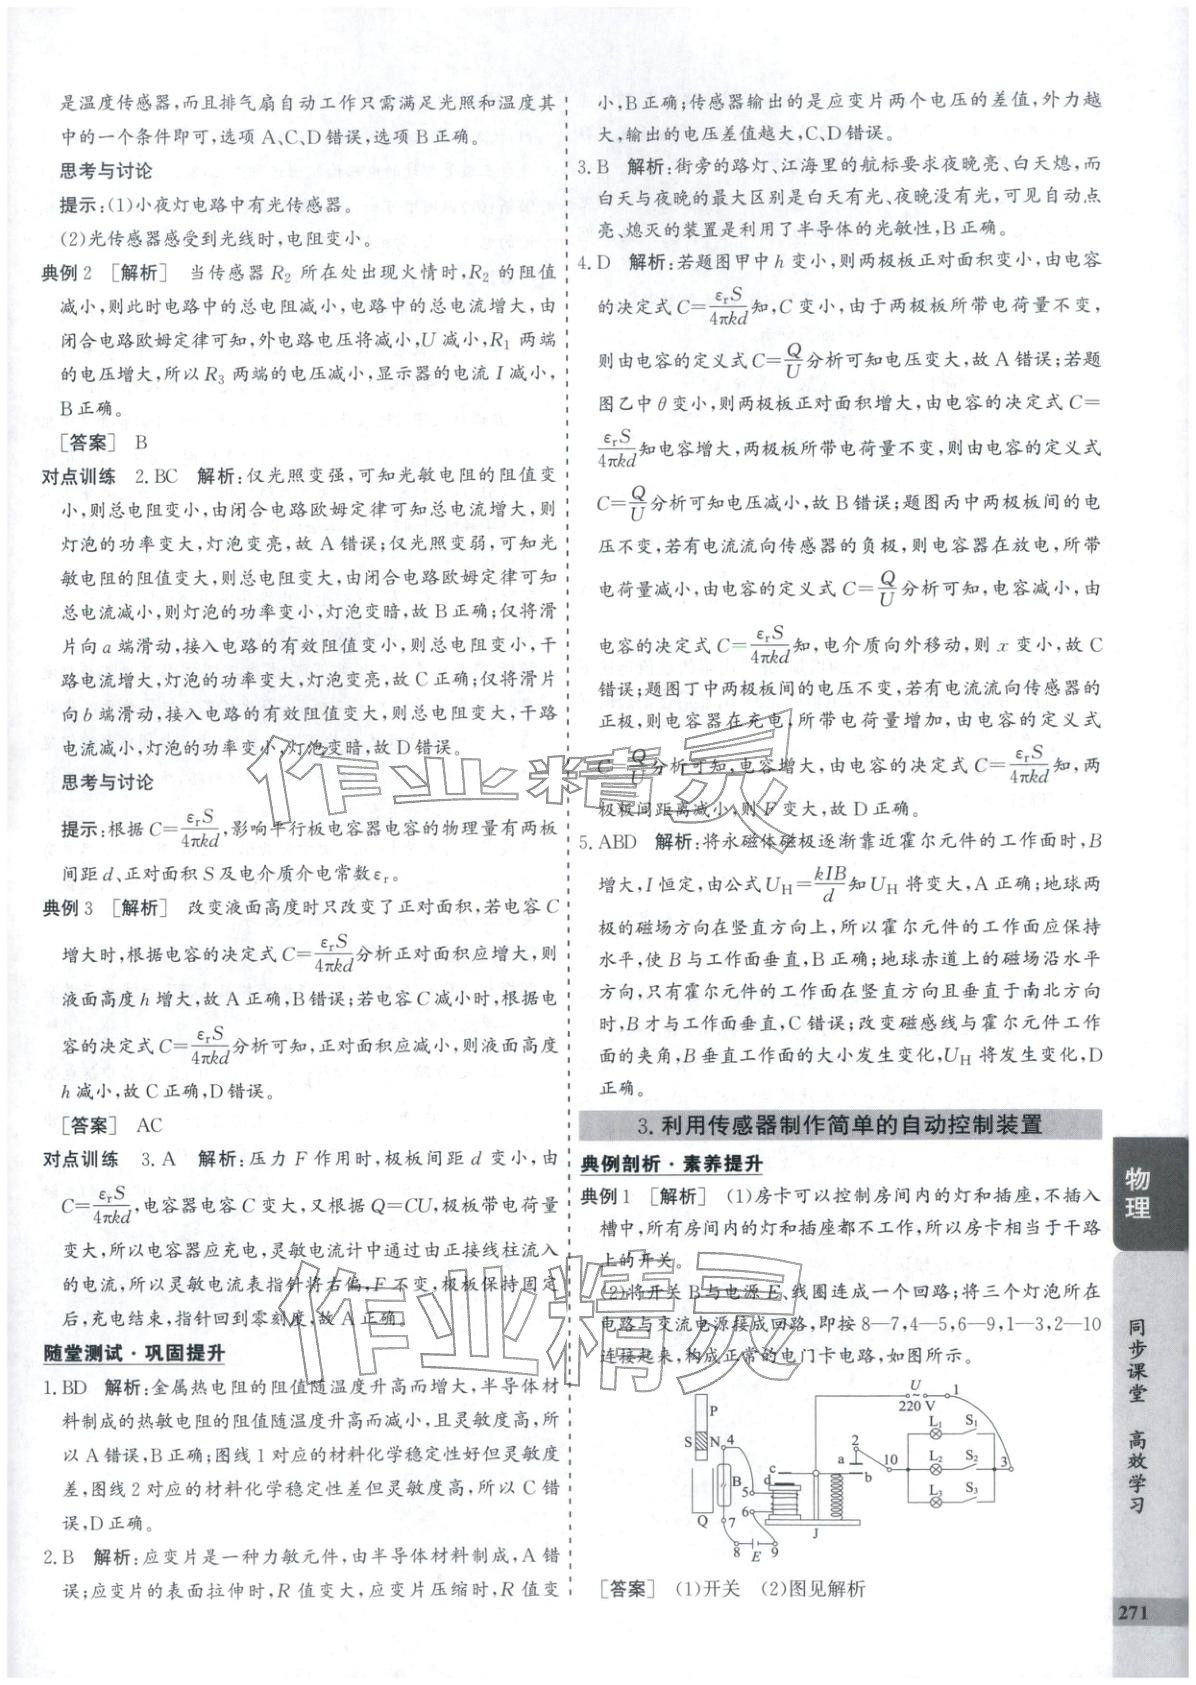 是温度传感器,而且排气扇自动工作只需满足光照和温度其
中的一个条件即可,选项A、C、D错误,选项B正确。
思考与讨论
提示:(1)小夜灯电路中有光传感器。
(2)光传感器感受到光线时,电阻变小。
典例2 [解析] 当传感器R₂所在处出现火情时,R₂的阻值
减小,则此时电路中的总电阻减小,电路中的总电流增大,由
闭合电路欧姆定律可知,外电路电压将减小,U减小,R₁两端
的电压增大,所以R₃两端的电压减小,显示器的电流I减小,
B正确。
[答案] B
对点训练 2.BC 解析:仅光照变强,可知光敏电阻的阻值变
小,则总电阻变小,由闭合电路欧姆定律可知总电流增大,则
灯泡的功率变大,灯泡变亮,故A错误;仅光照变弱,可知光
敏电阻的阻值变大,则总电阻变大,由闭合电路欧姆定律可知
总电流减小,则灯泡的功率变小,灯泡变暗,故B正确;仅将滑
片向a端滑动,接入电路的有效阻值变小,则总电阻变小,干
路电流变大,灯泡的功率变大,灯泡变亮,故C正确;仅将滑片
向b端滑动,接入电路的有效阻值变大,则总电阻变大,干路
电流减小,灯泡的功率变小,灯泡变暗,故D错误。
思考与讨论
提示:根据C=εᵣS/4πkd,影响平行板电容器电容的物理量有两板
间距d、正对面积S及电介质介电常数εᵣ。
典例3 [解析] 改变液面高度时只改变了正对面积,若电容C
增大时,根据电容的决定式C=εᵣS/4πkd分析正对面积应增大,则
液面高度h增大,故A正确,B错误;若电容C减小时,根据电
容的决定式C=εᵣS/4πkd分析可知,正对面积应减小,则液面高度
h减小,故C正确,D错误。
[答案] AC
对点训练 3.A 解析:压力F作用时,极板间距d变小,由
C=εᵣS/4πkd,电容器电容C变大,又根据Q=CU,极板带电荷量
变大,所以电容器应充电,灵敏电流计中通过由正接线柱流入
的电流,所以灵敏电流表指针将右偏,F不变,极板保持固定
后,充电结束,指针回到零刻度,故A正确。
随堂测试·巩固提升
1.BD 解析:金属热电阻的阻值随温度升高而增大,半导体材
料制成的热敏电阻的阻值随温度升高而减小,且灵敏度高,所
以A错误,B正确;图线1对应的材料化学稳定性好但灵敏度
差,图线2对应的材料化学稳定性差但灵敏度高,所以C错
误,D正确。
2.B 解析:应变片是一种力敏元件,由半导体材料制成,A错
误;应变片的表面拉伸时,R值变大,应变片压缩时,R值变
小,B正确;传感器输出的是应变片两个电压的差值,外力越
大,输出的电压差值越大,C、D错误。
3.B 解析:街旁的路灯、江海里的航标要求夜晚亮、白天熄,而
白天与夜晚的最大区别是白天有光、夜晚没有光,可见自动点
亮、熄灭的装置是利用了半导体的光敏性,B正确。
4.D 解析:若题图甲中h变小,则两极板正对面积变小,由电容
的决定式C=εᵣS/4πkd知,C变小,由于两极板所带电荷量不变,
则由电容的定义式C=Q/U分析可知电压变大,故A错误;若题
图乙中θ变小,则两极板正对面积增大,由电容的决定式C=
εᵣS/4πkd知电容增大,两极板所带电荷量不变,则由电容的定义式
C=Q/U分析可知电压减小,故B错误;题图丙中两极板间的电
压不变,若有电流流向传感器的负极,则电容器在放电,所带
电荷量减小,由电容的定义式C=Q/U分析可知,电容减小,由
电容的决定式C=εᵣS/4πkd知,电介质向外移动,则x变小,故C
错误;题图丁中两极板间的电压不变,若有电流流向传感器的
正极,则电容器在充电,所带电荷量增加,由电容的定义式
C=Q/U分析可知,电容增大,由电容的决定式C=εᵣS/4πkd知,两
极板间距离减小,则F变大,故D正确。
5.ABD 解析:将永磁体磁极逐渐靠近霍尔元件的工作面时,B
增大,I恒定,由公式U_H=kIB/d知U_H将变大,A正确;地球两
极的磁场方向在竖直方向上,所以霍尔元件的工作面应保持
水平,使B与工作面垂直,B正确;地球赤道上的磁场沿水平
方向,只有霍尔元件的工作面在竖直方向且垂直于南北方向
时,B才与工作面垂直,C错误;改变磁感线与霍尔元件工作
面的夹角,B垂直工作面的大小发生变化,U_H将发生变化,D
正确。
3.利用传感器制作简单的自动控制装置
典例剖析·素养提升
典例1 [解析] (1)房卡可以控制房间内的灯和插座,不插入
槽中,所有房间内的灯和插座都不工作,所以房卡相当于干路
上的开关。
(2)将开关B与电源E、线圈连成一个回路;将三个灯泡所在
电路与交流电源接成回路,即按8—7,4—5,6—9,1—3,2—10
连接起来,构成正常的电门卡电路,如图所示。
P
S N 4
B
Q 7
5
6
8 E 9
c
d
a
b
J
2
10
U
220 V
1
L₁ S₁
L₂ S₂
L₃ S₃
3
[答案] (1)开关 (2)图见解析
物理
同步课堂 高效学习
271
作业精灵
作业精灵